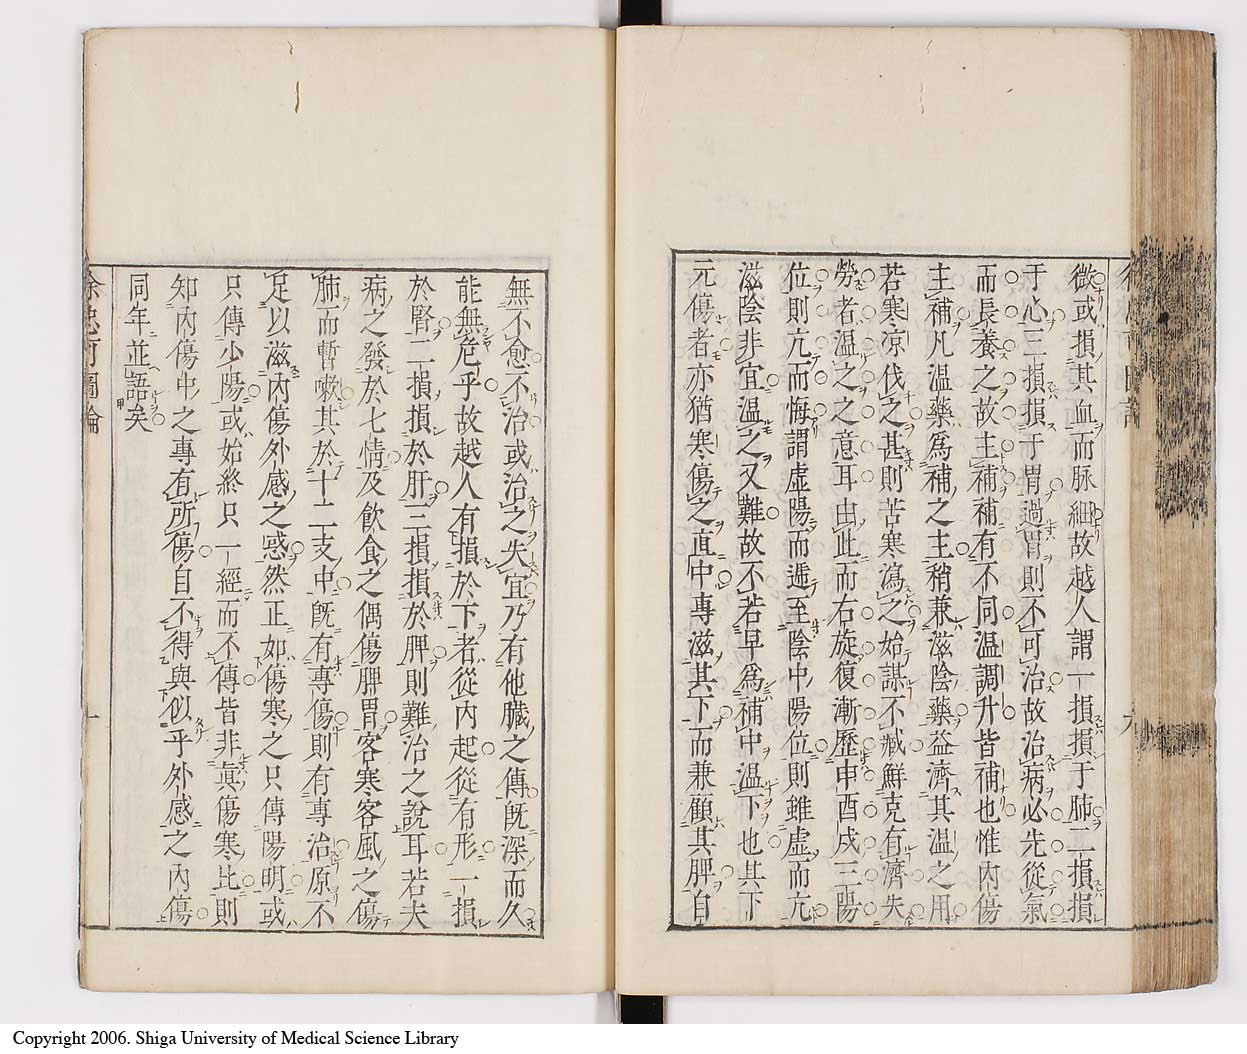 微或損其血而脉細故越人謂一損損于肺二損損
于心三損損于胃過胃則不可治故治病必先從氣
而長養之故主補補有不同温調升皆補也惟內傷
主補凡温藥爲補之主稍兼滋陰藥益濟其温之用
若寒凉伐之甚則苦寒瀉之始謀不臧鮮克有濟失
勞者温之之意耳由此而右旋復漸歷申酉戌三陽
位則亢而悔謂虚陽而遞至陰中陽位則雖虚而亢
滋陰非宜温之又難故不若早爲補中温下也其下
元傷者亦猶寒傷之直中專滋其下而兼顧其脾自
無不愈不治或治之失宜乃有他臟之傳旣深而久
能無危乎故越人有損於下者從內起從有形一損
於腎二損損於肝三損損於脾則難治之說耳若夫
病之發於七情及飲食之偶傷脾胃客寒客風之傷
肺而暫嗽其於十二支中旣有專傷則有專治原不
足以滋內傷外感之惑然正如傷寒之只傳陽明或
只傳少陽或始終只一經而不傳皆非眞傷寒比則
知內傷中之專有所傷自不得與似乎外感之內傷
同年並語矣
Copyright 2006. Shiga University of Medical Science Library